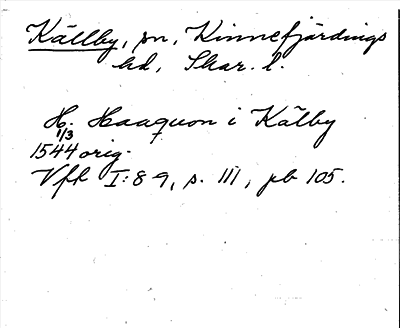 Källby, sn, Kinnefjärdings
hd, Skar. l.
H. Haaquon i Kälby
1/3
1544 orig.
Vfh I:8-9, s. 111, pb 105.